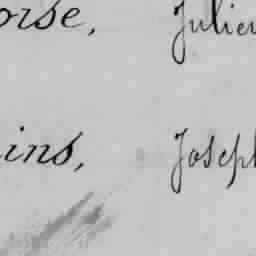 orse, Julien
ins, Joseph